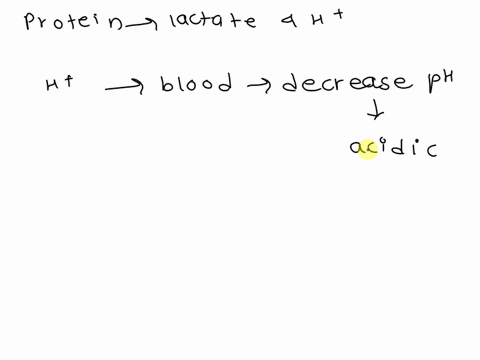 Protein → lactate & H+
H+ → blood → decrease pH
↓
acidic